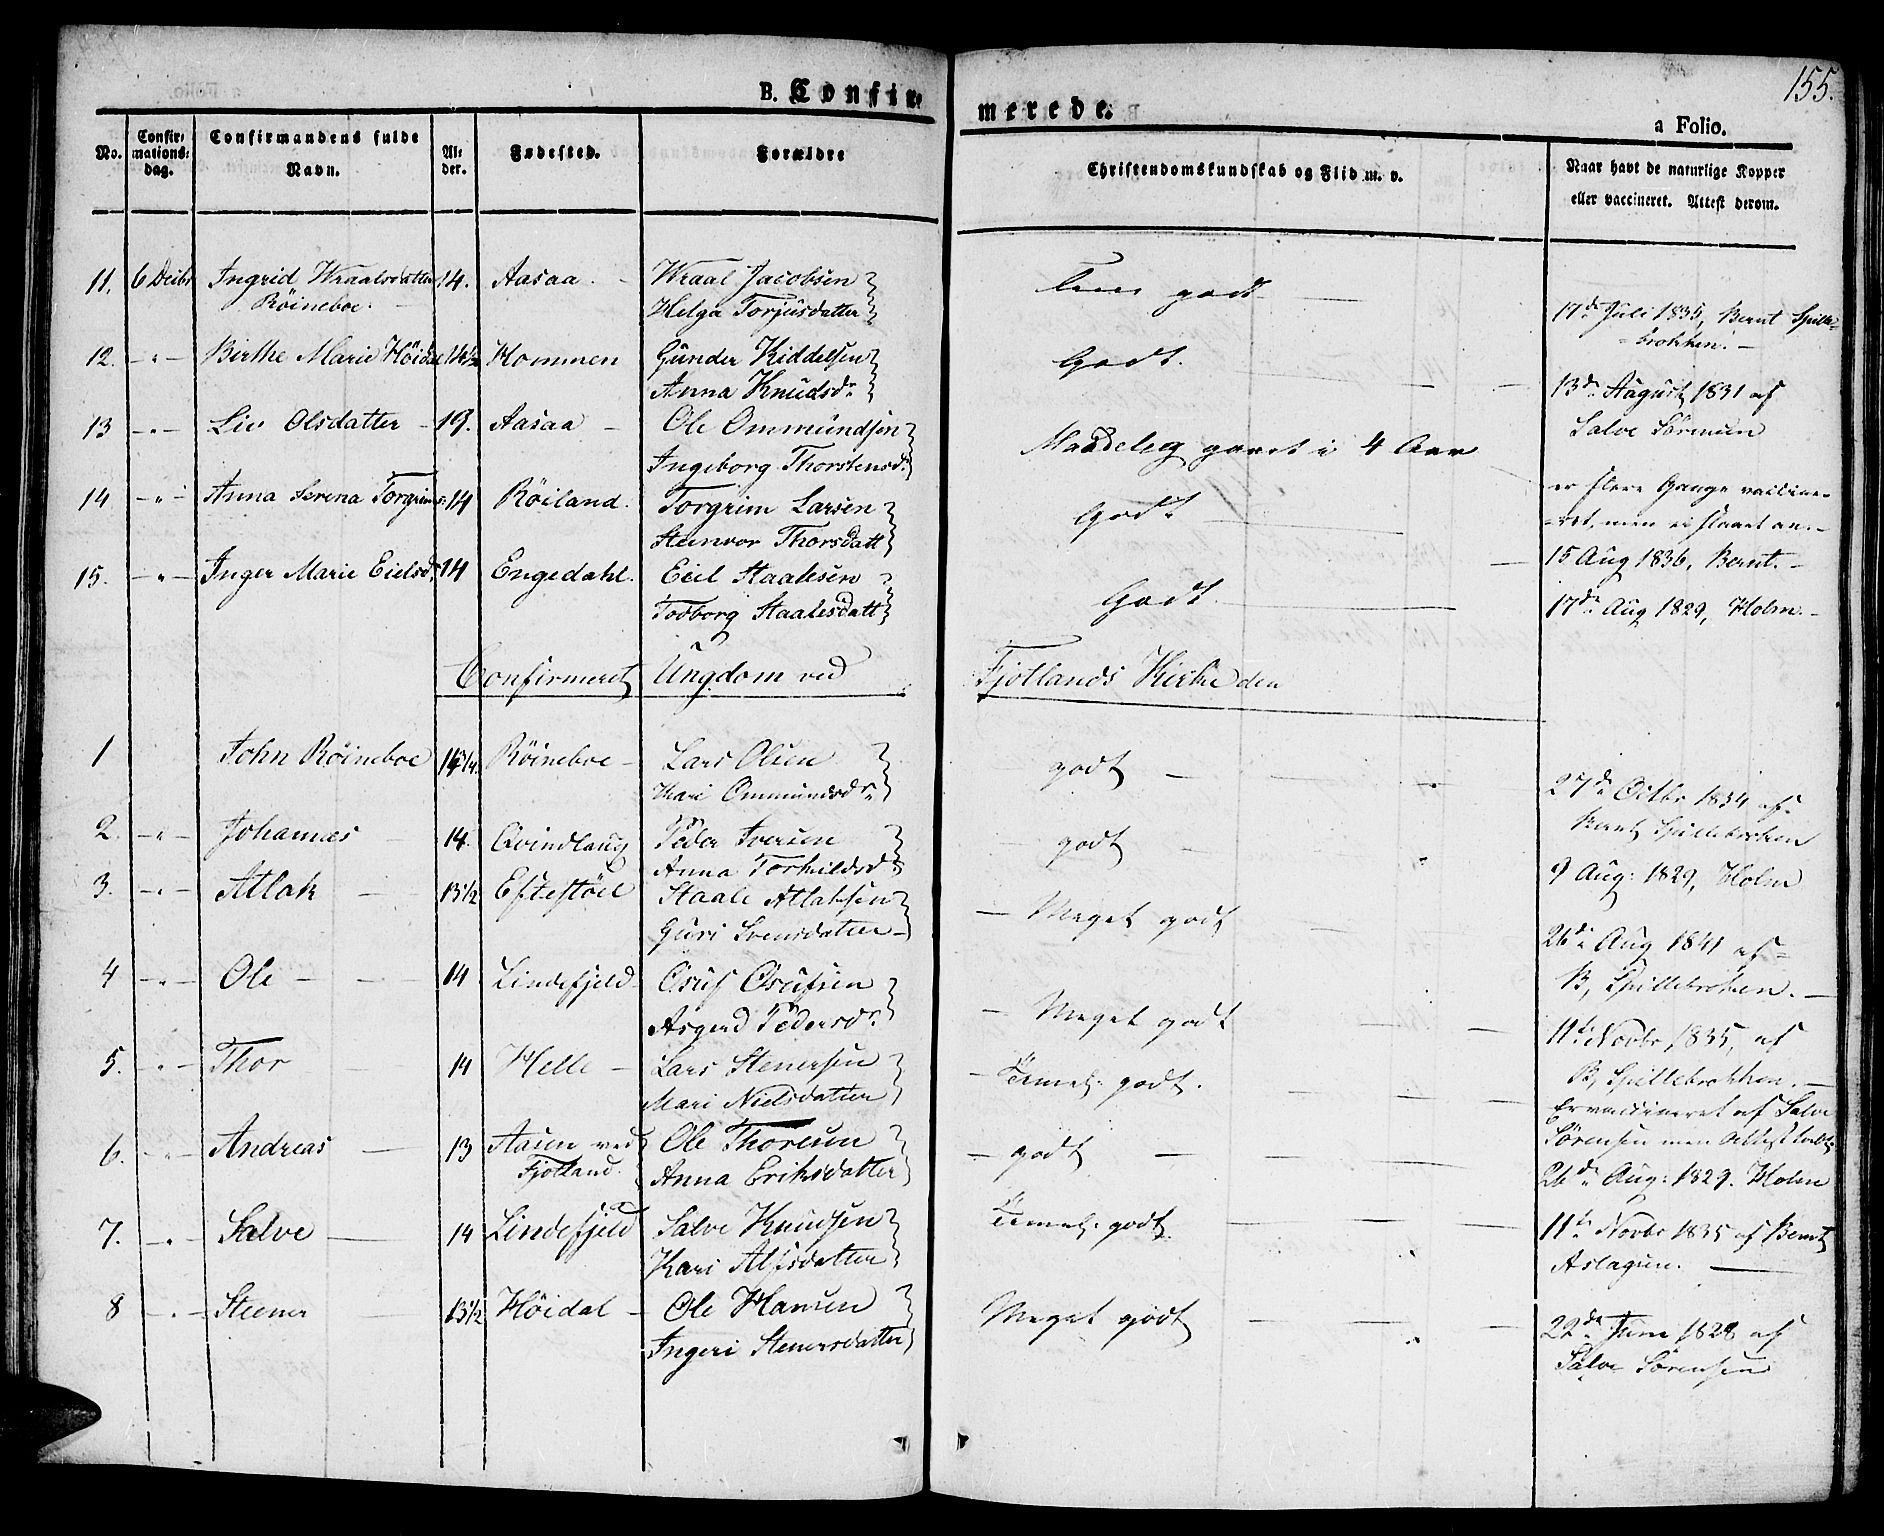 155.
B. Confir-
merede.
a Folio.
No.
Confir-
mations-
dag.
Confirmandens fulde
Navn.
Al-
der.
Fødested.
Forældre
Christendomskundskab og Flid m. v.
Naar havt de naturlige Kopper
eller vaccineret. Attest derom.
11. 6 Decbr Ingrid Wraalsdatter 14. Aasaa. - Wraal Jacobsen
Röineboe. - Helga Torjusdatter
godt
17de Juli 1835, Bernt Spille-
-brokken. -
12. - " - Birthe Marie Höidal 14 1/2 Kommen Gunder Kiddelsen
Anna Knudsdr
Godt.
13de August 1831 af
Salve Sörensen
13 - " - Liv Olsdatter - 19. Aasaa - Ole Ommundsen
Ingeborg Thorstensdr
Maadelig gaaet i 4 Aar
er flere Gange vaccine-
-ret, men ei slaaet an. -
14 - " - Anna Serena Torgrims: 14 Röiland. Torgrim Larsen
Steinvor Thorsdatt
Godt
15 Aug 1836, Bernt. -
15. - " - Inger Marie Eielsdr 14 Engedahl. Eiel Staalesen
Todborg Staalesdatt
Godt.
17de Aug 1829, Holm. -
Confirmeret Ungdom ved Fjotlands Kirke den
1 John Röineboe 14 3/4. Röineboe - Lars Olsen
Kari Ommundsdr
godt -
27de Octbr 1834 af
Bernt Spillebrokken
2. - " - Johannes - 14. Qvindlaug Peder Iversen
Anna Torkildsdr
godt -
9 Aug: 1829, Holm
3. - " - Atlak - 13 1/2 Eftestöel Staale Atlaksen
Guri Svensdatter -
- Meget godt
26de Aug 1841 af
B. Spillebrokken. -
4 - " - Ole - - 14 Lindefjeld Osuf Osufsen
Asgerd Pedersdr
- Meget godt
11te Novbr 1835, af
B, Spillebrokken. -
5. - " - Thor 14 Helle - Lars Stenersen
Mari Nielsdatter
- Temel: godt.
Er vaccineret af Salve
Sörensen men Attest
6. - " - Andreas - 13 Aasen ved Ole Thorsen
Fjotland. Anna Eriksdatter
- godt -
26de Aug: 1829. Holm
7. - " - Salve - 14 Lindefjeld Salve Knudsen
Kari Alfsdatter
Temel: godt.
11te Novbr 1835 af Bernt
Aslagsen. -
8 - " - Steener 13 1/2 Höidal - Ole Hansen
Ingeri Stenersdatter
Meget godt
22de Juni 1828 af
Salve Sörensen